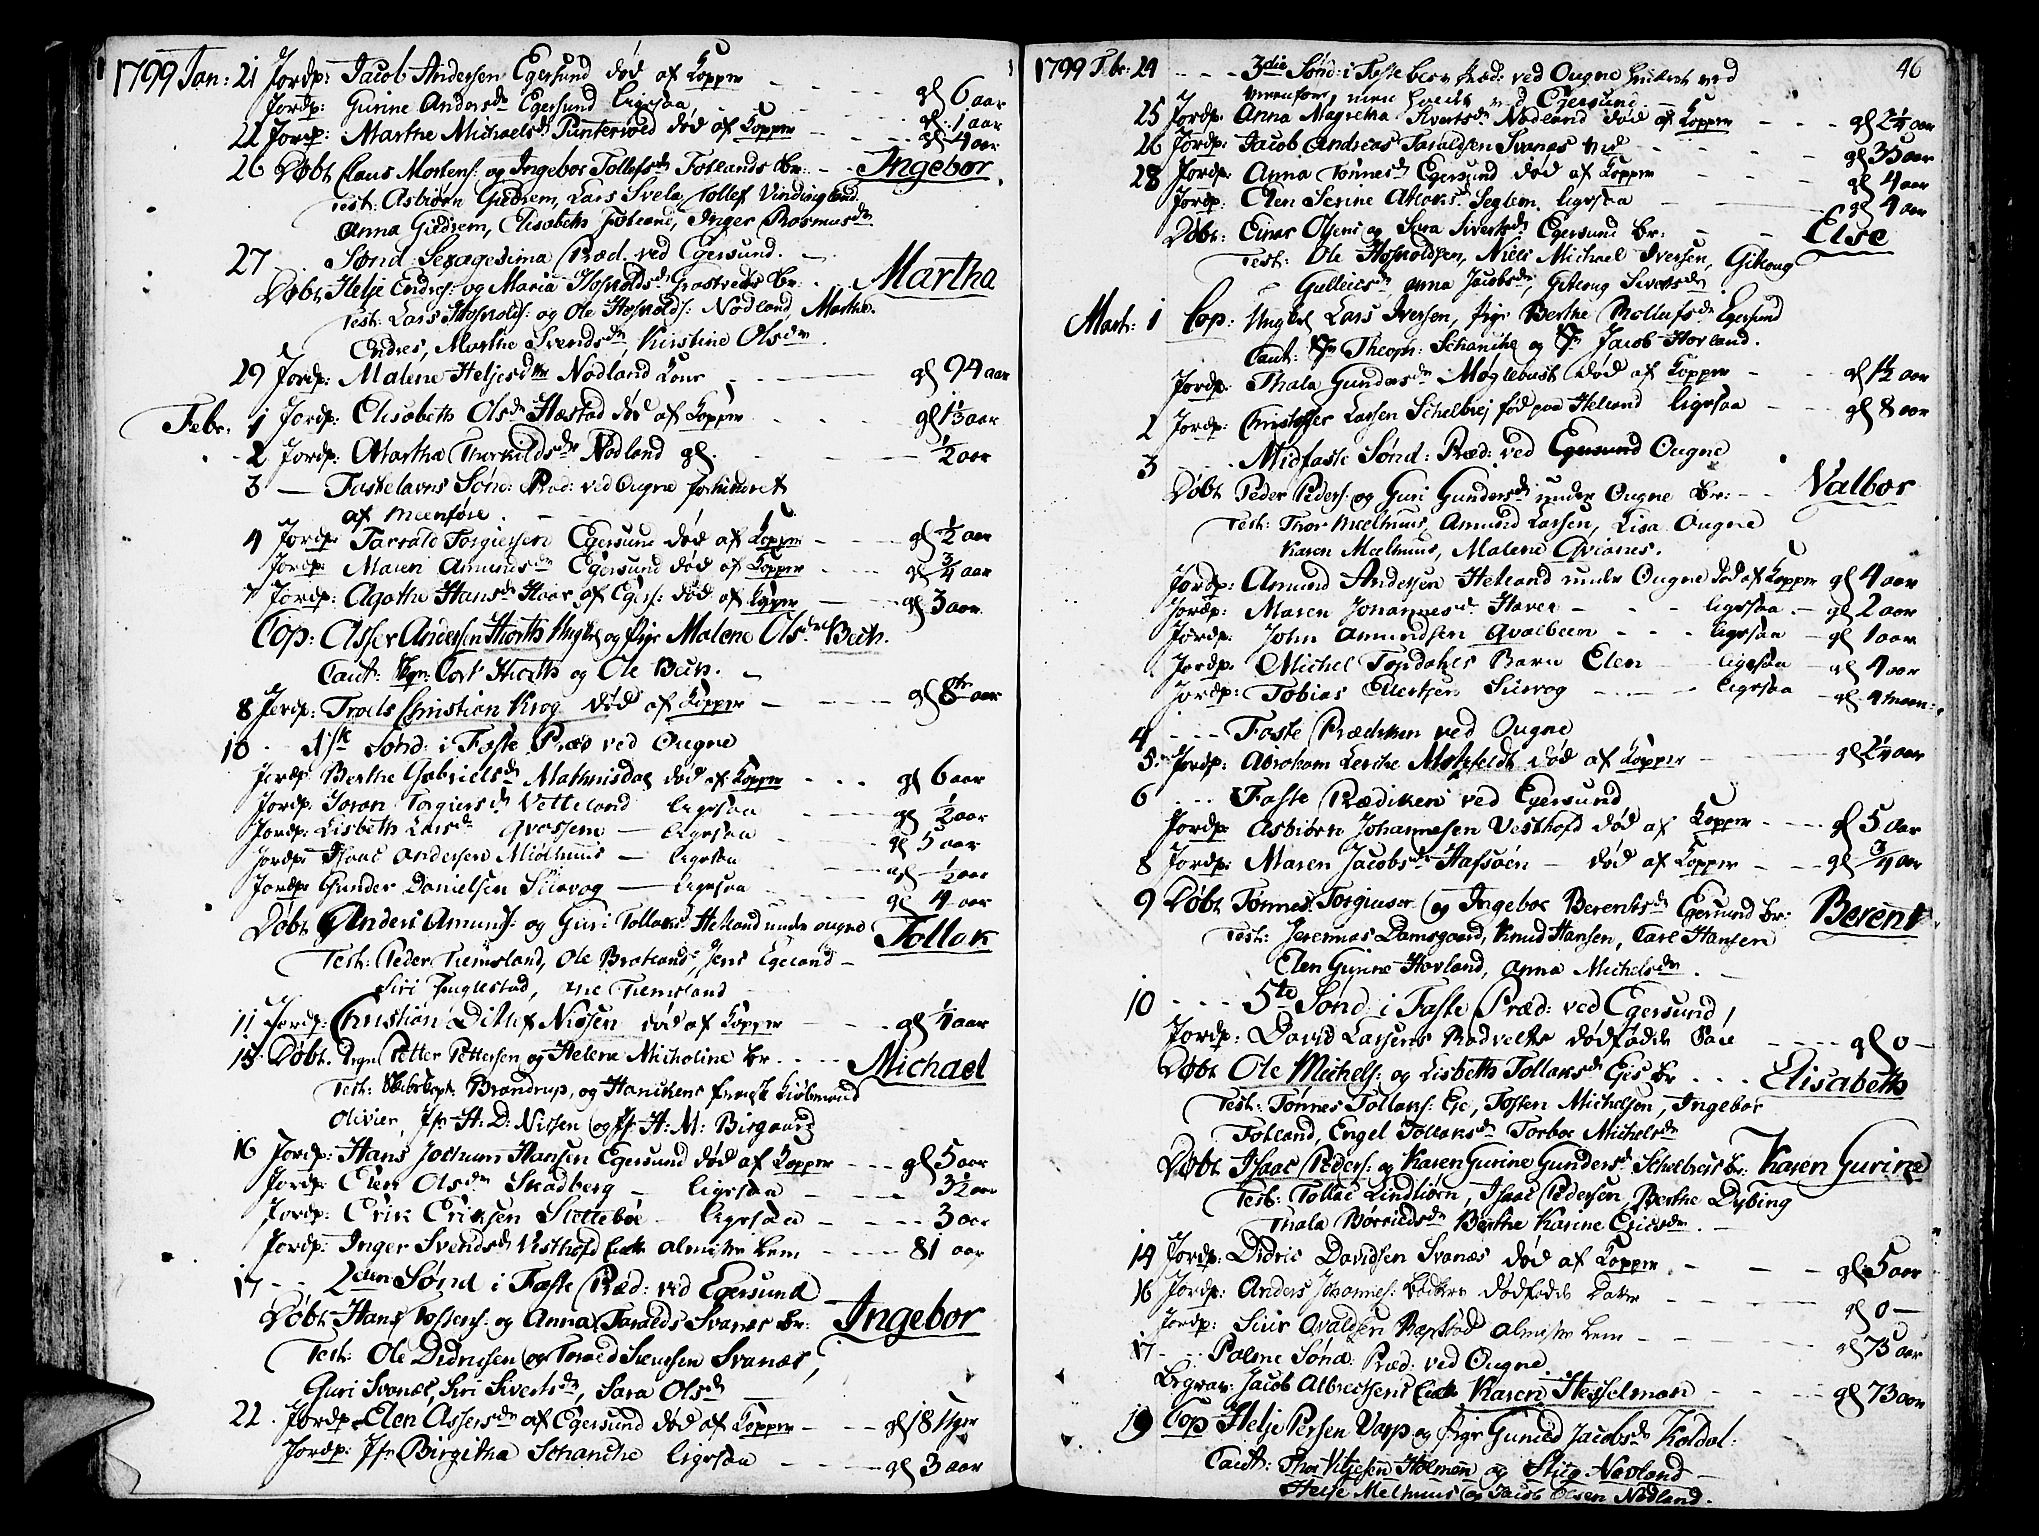 1799 Jan: 21 Jordp: Jacob Andersen Egersund død af Kopper - - - gl 6 aar
Jordp: Gurine Andersdr Egersund ligesaa - - gl. 1 aar
22 Jordp: Marthe Michaelsdr Puntervold død af Kopper - - - gl 4 aar
26 Døbt Claus Mortens: og Ingebor Tollefsdr Fotlands Br: - - Ingebor
Test: Asbiørn Gydrem, Lars Svela, Tollef Vindingland
Anna Gydrem, Elisabeth Fotland, Inger Rasmusdr
27 Sønd Sexagesima Præd. ved Egersund. -
Døbt Helje Endres: og Maria Hosvoldsdr Grastveds Br: - Martha
Test: Lars Hosvolds: og Ole Hosvolds: Nodland, Marthe
Endres, Marthe Svendsdr Kirstine Olsdr
29 Jordp: Malene Heljesdtr Nodland Kone - - - gl 94 aar
Febr. 1 Jordp: Elisabeth Olsdr Hæstad død af Kopper - - - gl 1½ aar
2 Jordp: Martha Thorkildsdr Nodland gl. - - - ½ aar
3 — Fastelavns Sønd: Præd: ved Ougne forhindret
af meenføre.
4 Jordp: Tarrald Torgiersen Egersund død af Kopper - - - gl ½ aar
Jordp: Maren Amundsdr Egersund død af Kopper - - gl ¾ aar
7 Jordp: Agathe Hansdr Hoas af Egers: død af Kopper - - gl 3 aar
Cop: Asser Andersen Hiorth Ungkl og Pige Malene Olsdr Bech.
Caut: Cort Hiorth og Ole Bech. -
8 Jordp: Troels Christian Krog død af Kopper - - - gl 8te aar
10 - 1ste Sønd: i Faste Præd ved Ougne
Jordp: Berthe Gabrielsdr Mathuisdal død af Kopper - - - gl 6 aar
Jordp: Joran Torgiersdr Vetteland ligesaa gl ½ aar
Jordp: Lisbeth Larsdr Qvassem - ligesaa - gl 5 aar
Jordp: Isaac Andersen Miølhuus - ligesaa - gl ½ aar
Jordp: Gunder Danielsen Siirvog - ligesaa - gl 4 aar
Døbt Anders Amunds: og Guri Tollaks: Hetland under Ougne Tollak
Test: Peder Tiemsland, Ole Bratland, Jens Egeland -
Siri Fuglestad, Ane Tiemsland
11 Jordp: Christian Ditlef Nissen død af Kopper - - - gl ¼ aar
15 Døbt. Petter Pettersen og Helene Micholine Br. - - Michael
Test: Brandrup, og Hanchens
Olivier, Jfr H: D: Nissen og Jfr H: M: Birgaard
16 Jordp: Hans Jochum Hansen Egersund død af Kopper - - - gl 5 aar
Jordp: Elen Olsdr Skadberg - ligesaa - - - 3½ aar
Jordp: Erik Eriksen Slettebøe ligesaa - - - 3 aar
Jordp: Inger Svendsdr Vesthofd Enke Almisse Lem - - - 81 aar
17 - - 2den Sønd i Faste Præd: ved Egersund
Døbt Hans Tostens: og Anna Taralds Svanes Br: Ingebor
Test: Ole Didrichsen og Torald Svendsen Svanes,
Guri Svanes, Siri Sivertsdr, Sara Olsdr
22. Jordp: Elen Assersdr af Egersund død af Kopper - - - gl 18 Uger
Jordp: Jfr Birgitha Schanche ligesaa - - - gl 3 aar
46
1799 Febr: 24 - - - 3die Sønd: i Faste Præd: ved Ougne hindret ved
meenføre, men holdt ved Egersund.
25 Jordp: Anna Magretha Sivertsdr Nodland død af Kopper - - - gl 2¼ aar
26 Jordp: Jacob Andreas Taraldsen Svanes - - - gl 3½ aar
28 Jordp: Anna Tønnesdr Egersund død af Kopper - - - gl 4 aar
Jordp: Elen Serine Seglem ligesaa - - - gl 4 aar
Døbt: Einar Olsens og Sara Sivertsdr Egersund Br: - - Else
Test: Ole Hosvoldsen, Niels Michael Iversen, Gitlaug
Anna Jacobsdr, Gitlaug Sivertsdr
Marts: 1 Cop: Ungkl Lars Iversen, Pige Berthe Rollufsdr Egersund
Caut: Sr Theoph: Schanche og Sr Jacob Hovland.
Jordp: Thala Gundersdr Møglebust død af Kopper - - gl 1½ aar
2 Jordp: Christoffer Larsen Schelbrej født paa Hetland ligesaa - - gl 8 aar
3 - - Midfaste Sønd: Præd: ved Egersund Ougne
Døbt Peder Peders: og Guri Gundersdr under Ougne Br: - - Valbor
Test: Thor Mælhuus, Amund Larsen, Lisa Ougne
Karen Mælhuus, Malene Qvianes.
Jordp: Amund Andersen Hetland under Ougne død af Kopper gl 4 aar
Jordp: Maren Johannesdr Haver - - - ligesaa - gl 2 aar
Jordp: John Amundsen Qvalbeen - - - ligesaa - gl 1 aar
Jordp: Michel Topdahls Barn Elen - ligesaa - gl 4 aar
Jordp: Tobias Eilertsen Siirvog - - - ligesaa - gl 4 maan:
4 - - - Faste Prædiken ved Ougne
5. Jordp: Abraham Lerche Motzfeldt død af Kopper - - gl 2¼ aar
6 - - - Faste Prædiken ved Egersund
Jordp: Asbiørn Johannesen Vesthofd død af Kopper - - - gl 5 aar
8 Jordp: Maren Jacobsdr Hafsøen - død af Kopper - - gl ¾ aar
9 Døbt Tønnes Torgiuser og Ingebor Berentsdr Egersund Br: Berent
Test: Jeremias Damsgaard, Knud Hansen, Carl Hansen
Elen Gurine Hovland, Anna Michelsdr. -
10 - - - 5te Sønd: i Faste Præd: ved Egersund
Jordp: David Larsens Rødvelts dødfødde - - - gl 0 -
Døbt Ole Michels: og Lisbeth Tollaksdr Eies Br - - - Elisabeth
Test: Tønnes Tollaks: Eie, Tosten Michelsen, Ingebor
Fotland, Engel Tollaksdr Torbor Michelsdr
Døbt Isaac Peders: og Karen Gurine Gundersdr Schelbreis Br: Karen Gurine
Test: Tollac Lindtiørn, Isaac Pedersen, Berthe Dybing
Thala Børresdr Berthe Karine Ericsdr. -
14 Jordp: Didric Davidsen Svanes død af Kopper - - - gl 5 aar
16 Jordp: Anders Johannes: dødfødde Datter - - - gl 0 -
Jordp: Siri Ovaldsen Rapstad Almisse Lem - - - gl 73 aar
17 - - Palme Sønd: Præd: ved Ougne.
Begrav: Jacob Albrechtsens Enke Karen Hesselman - - - gl 73 aar
19 Cop Helje Persen Varp og Pige Guned Jacobsdr Koldal:
Caut: Thor Vitjesen Holmen og Stieg Navland -
Helje Melhuus og Jacob Olsen Nodland.